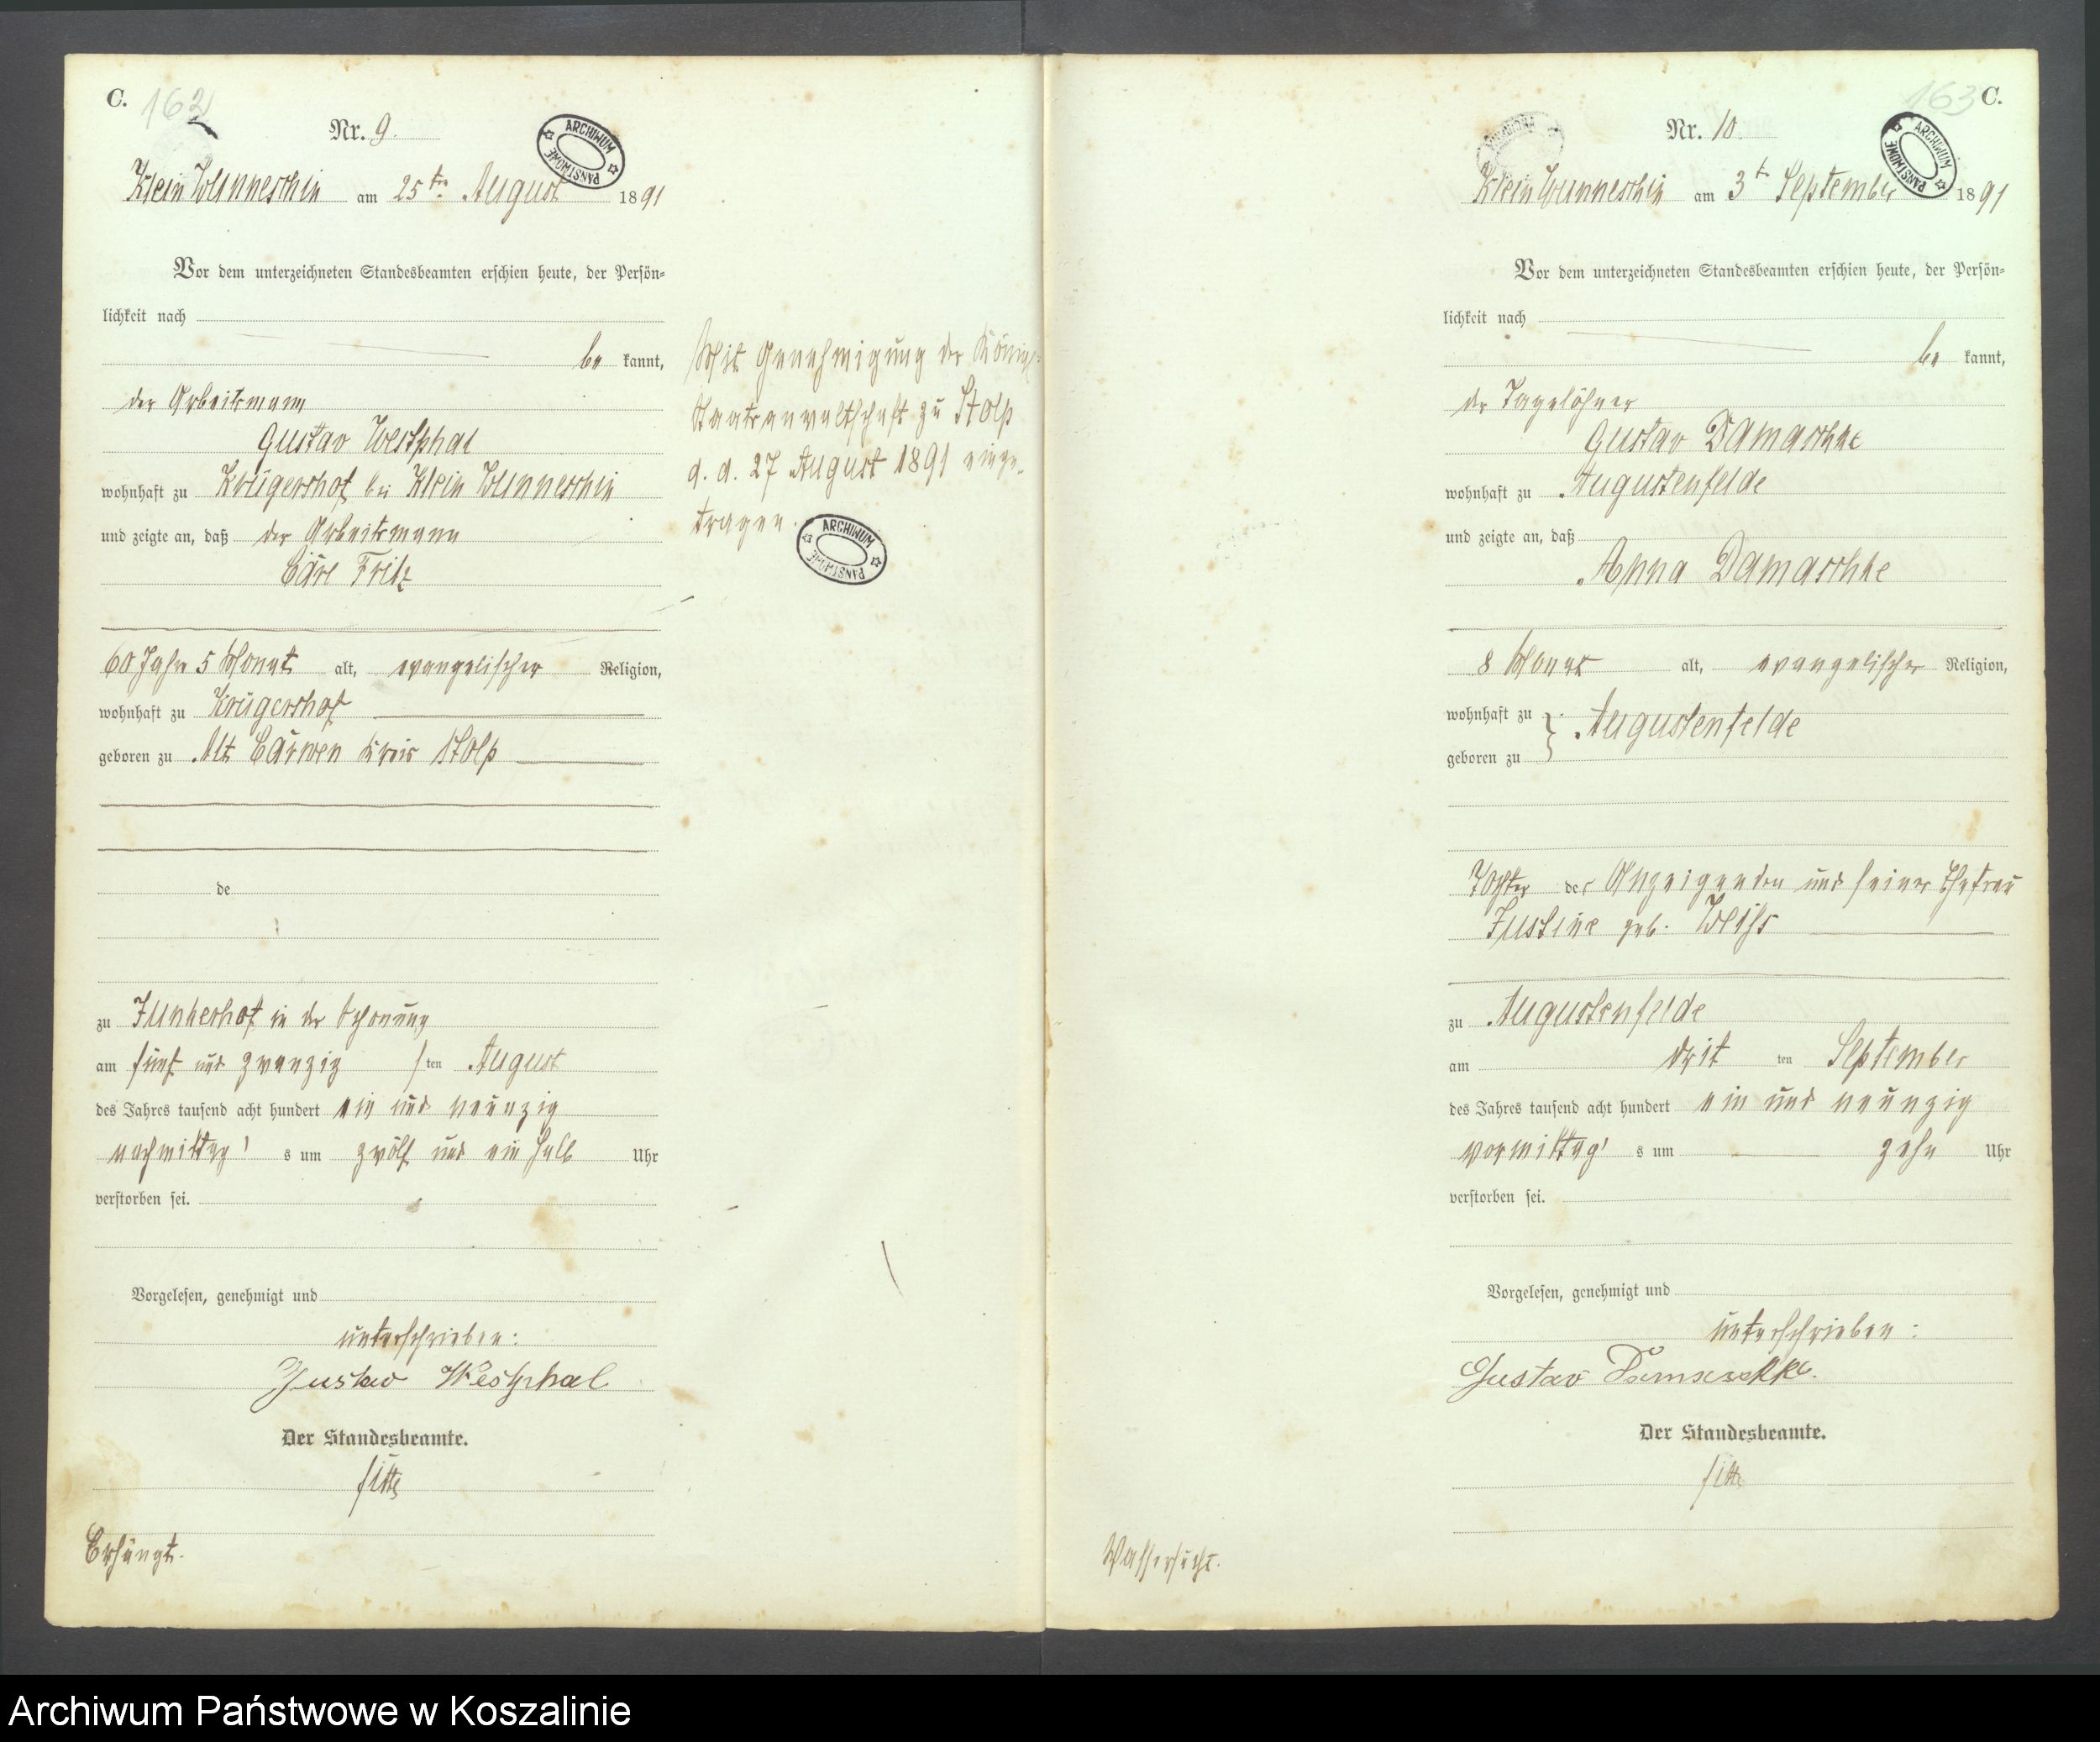 C. 162
Nr. 9.
ARCHIWUM PAŃSTWOWE
Klein Wunneschin am 25ten August 1891
Vor dem unterzeichneten Standesbeamten erschien heute, der Persön-
lichkeit nach
be kannt,
der Arbeitsmann
Gustav Westphal
wohnhaft zu Krügershof bei Klein Wunneschin
und zeigte an, daß der Arbeitsmann
Carl Fritz
60 Jahre 5 Monat alt, evangelischer Religion,
wohnhaft zu Krügershof
geboren zu Alt Carwen Kreis Stolp
de
zu Junkerhof in der Schonung
am fünf und zwanzig sten August
des Jahres tausend acht hundert ein und neunzig
nachmittag s um zwölf und ein halb Uhr
verstorben sei.
Vorgelesen, genehmigt und
unterschrieben:
Gustav Westphal
Der Standesbeamte.
Erhängt.
Mit Genehmigung der Königl.
Staatsanwaltschaft zu Stolp
d. d. 27 August 1891 einge-
tragen.
ARCHIWUM PAŃSTWOWE
163 C.
Nr. 10.
ARCHIWUM PAŃSTWOWE
Klein Wunneschin am 3t September 1891
Vor dem unterzeichneten Standesbeamten erschien heute, der Persön-
lichkeit nach
be kannt,
der Tagelöhner
Gustav Damaschke
wohnhaft zu Augustenfelde
und zeigte an, daß
Anna Damaschke
8 Monat alt, evangelischer Religion,
wohnhaft zu } Augustenfelde
geboren zu
Tochter des Anzeigenden und seiner Ehefrau
Justine geb. Weiss
zu Augustenfelde
am drit ten September
des Jahres tausend acht hundert ein und neunzig
vormittag s um zehn Uhr
verstorben sei.
Vorgelesen, genehmigt und
unterschrieben:
Gustav Damaschke.
Der Standesbeamte.
Wassersucht.
Archiwum Państwowe w Koszalinie